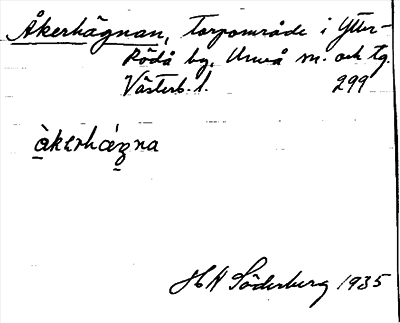 Åkerhägnan, torpområde i Ytter-
Rödå by, Umeå m. och tg.
Västerb. l. 299
àkerhǽgna
H A Söderberg 1935